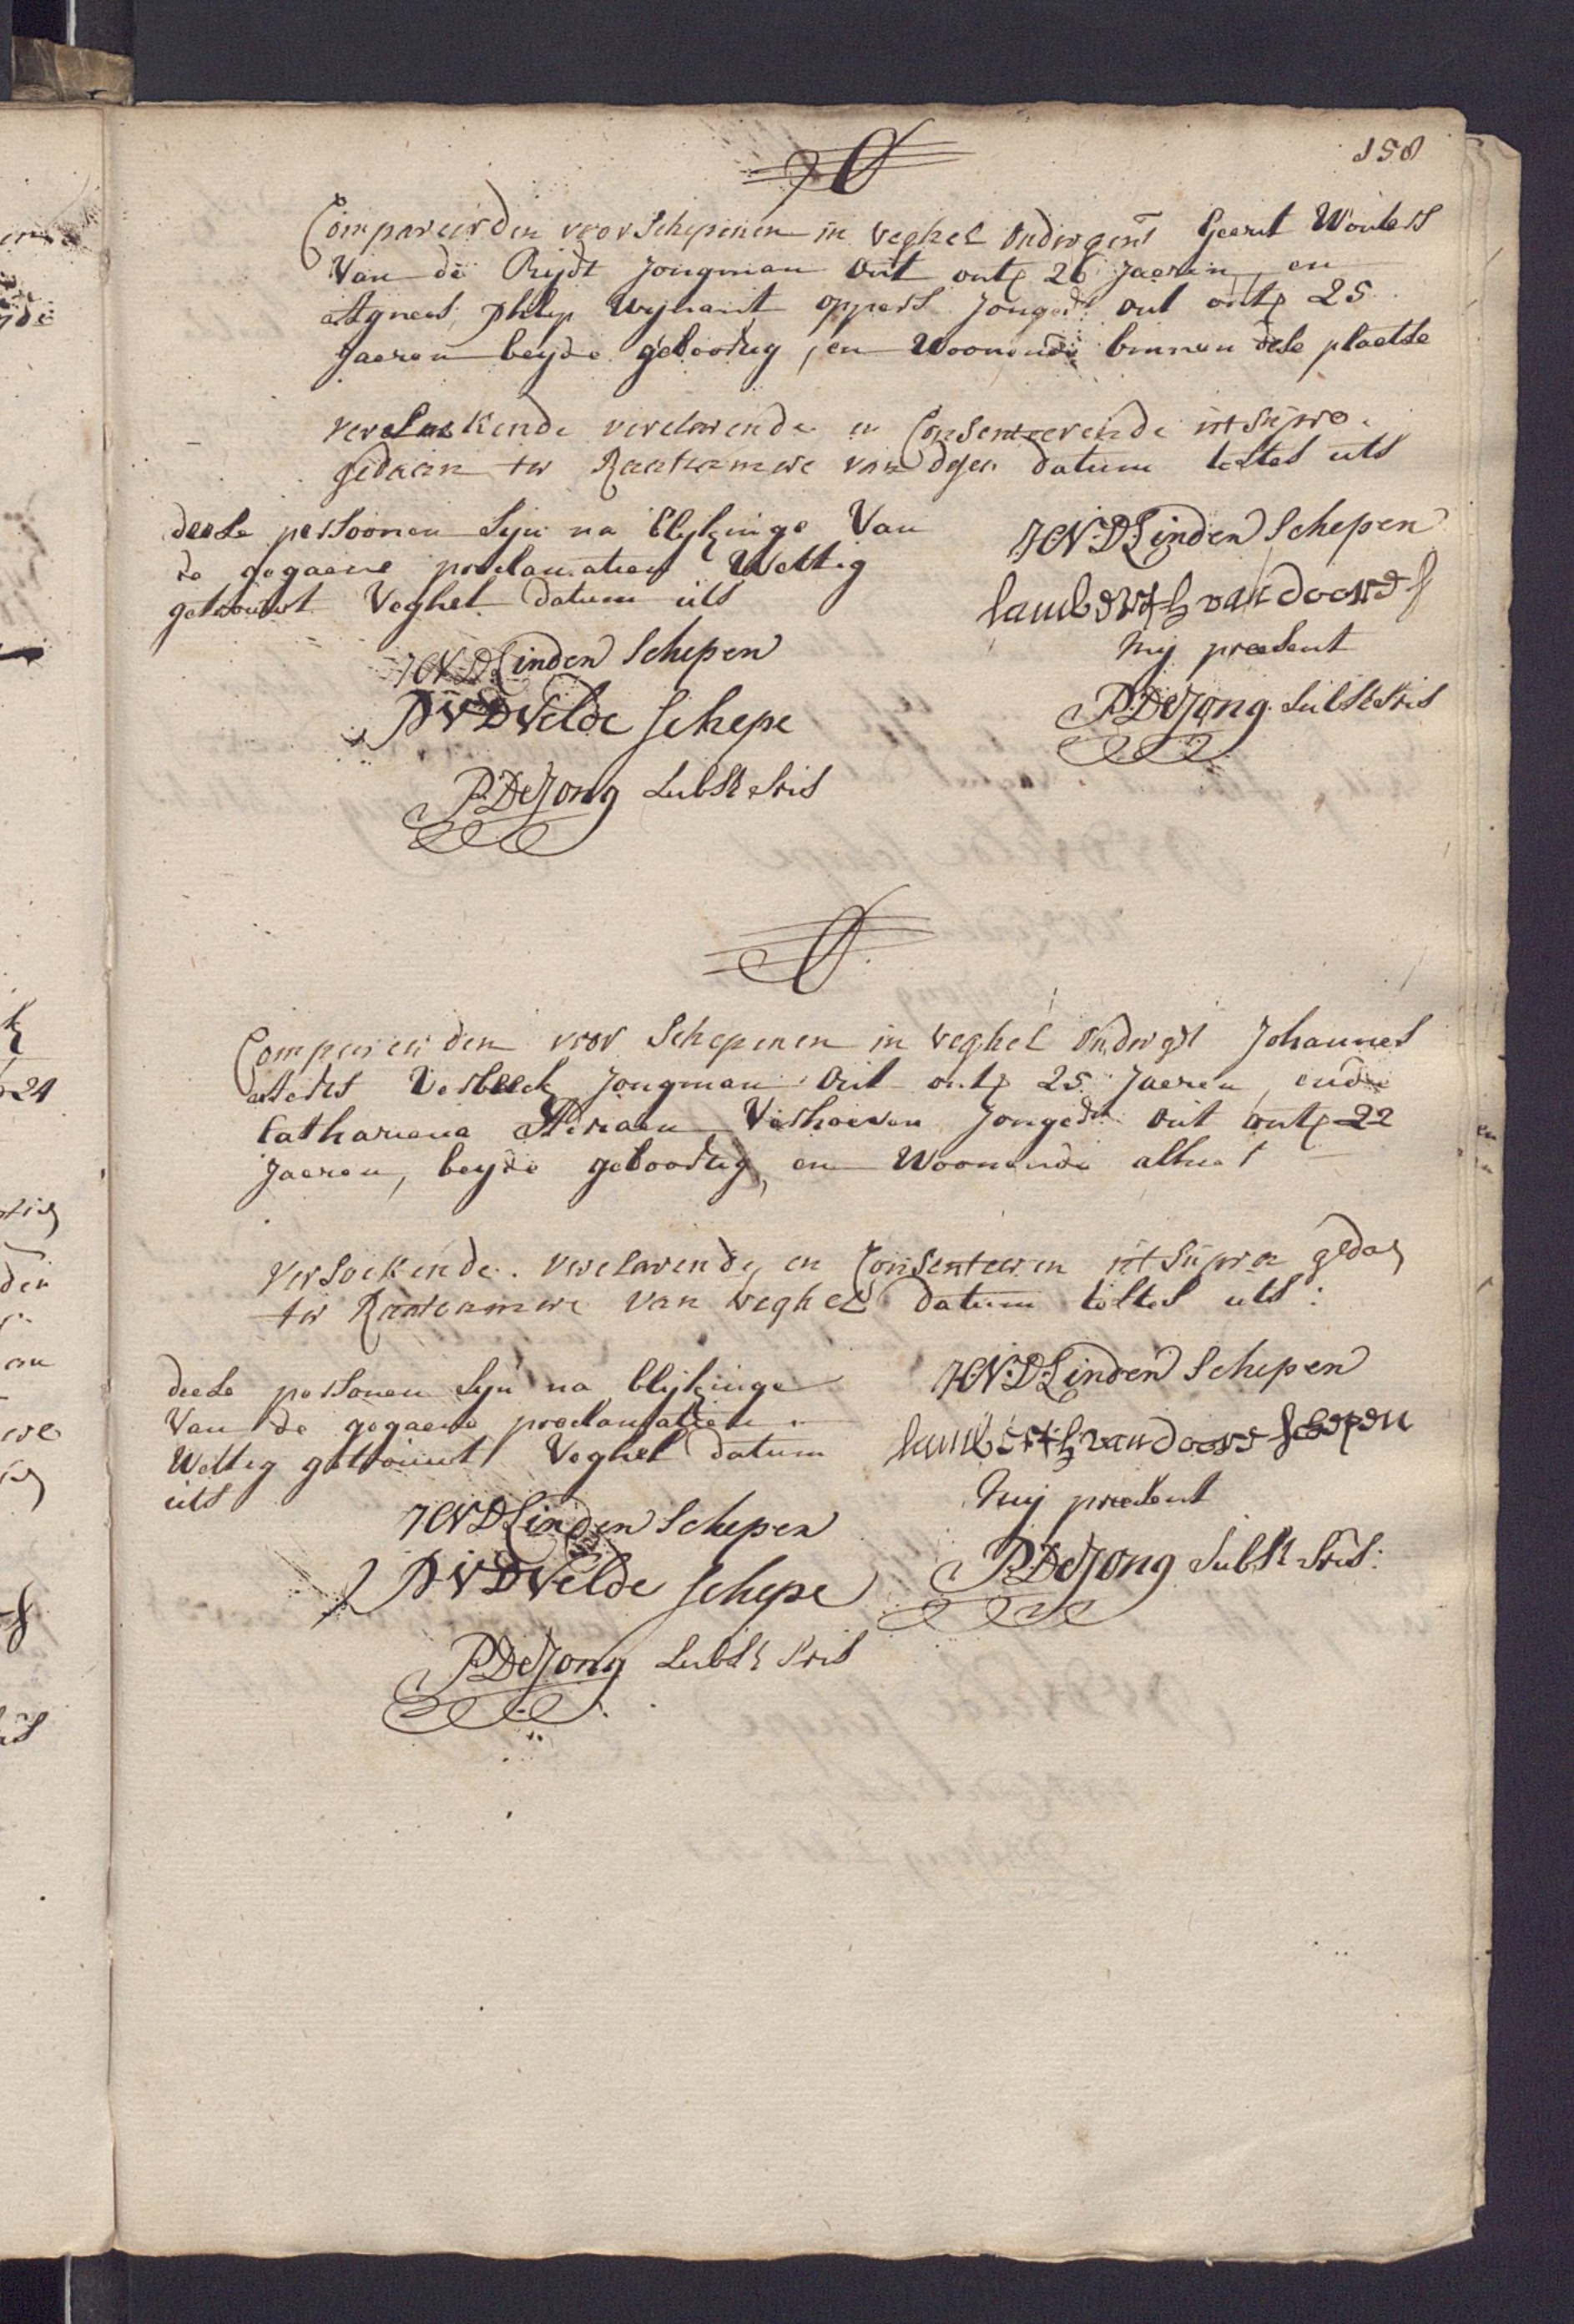 158
Compareerden voor Schepenen in Veghel onderget Geerit Wouters
Van de Rijdt Jongman Out ontr 26 Jaeren, en
Agnees, Philip Wijnant oppers Jonged: out ontr 25
Jaeren beijde geboortig, en Woonende binnen dese plaetse
versoekende verclarende en Consenteerende ut supra.
gedaan ter Raatcamere van datum testes uts
deese persoonen sijn na blijkinge Van
de gegaene proclamatien Wettig
getrouwt Veghel datum uts
J H V D Linden Schepen
Lambert H van doorn S
Mij praesent
P. De Jong. Subst Sris
J H V D Linden Schepen
P V D Velde Schepe
P. De Jong Subst Sris
Compareerden voor Schepenen in Veghel Ondergt Johannes
Aerts Verbeeck Jongman Out ontr 25 Jaeren, ende
Cathariena Adriaen Verhoeven Jonged: out ontr 22
Jaeren, beijde geboortig, en Woonende alhier
Versoekende. verclarende, en Consenteeren ut supra gedaen
ter Raatcamere van Veghel datum testes uts:
deese persoonen sijn na blijkinge
Van de gegaene proclamatien
Wettig getrouwt Veghel datum
uts
J H V D Linden Schepen
Lambert H van doorn Schepen
Mij praesent
P. De Jong Subst Sris:
J H V D Linden Schepen
P V D Velde Schepe
P. De Jong Subst Sris